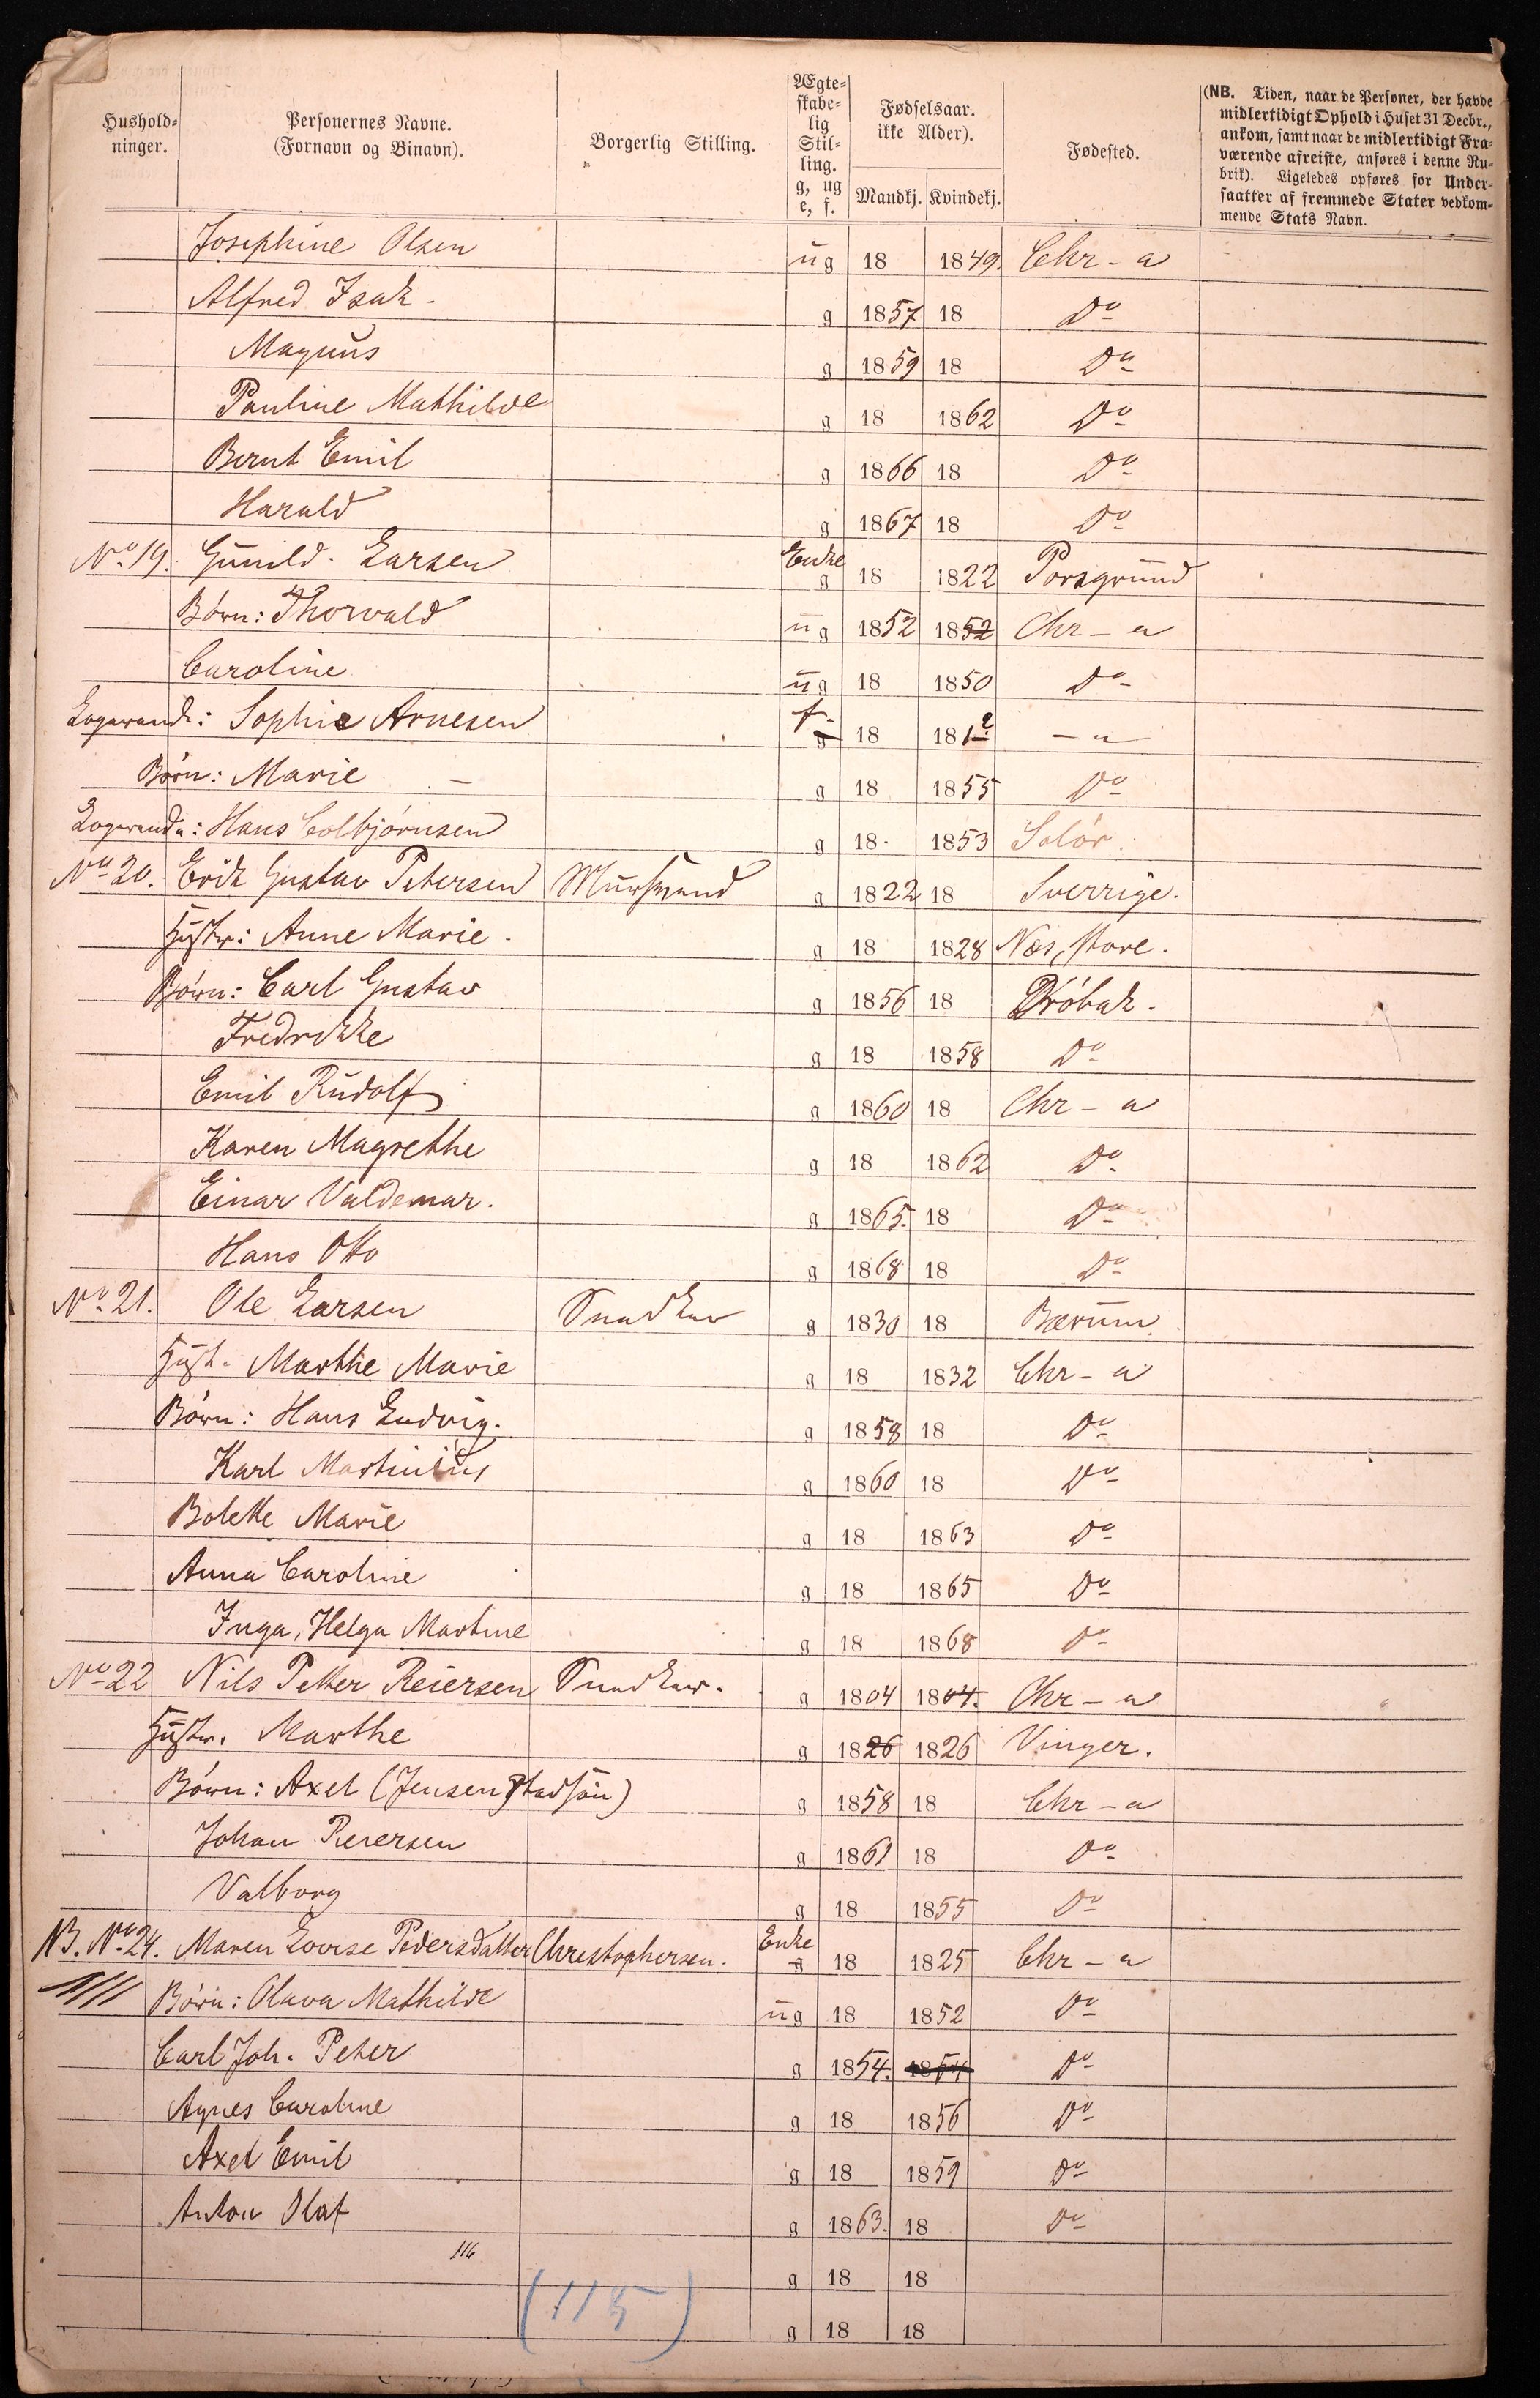 Hushold-
ninger.
Personernes Navne.
(Fornavn og Binavn).
Borgerlig Stilling.
Ægte-
skabe-
lig
Stil-
ling.
g, ug
e, f.
Fødselsaar.
ikke Alder).
Mandkj. Kvindekj.
Fødested.
(NB. Tiden, naar de Personer, der havde
midlertidigt Ophold i Huset 31 Decbr.,
ankom, samt naar de midlertidigt Fra-
værende afreiste, anføres i denne Ru-
brik). Ligeledes opføres for Under-
saatter af fremmede Stater vedkom-
mende Stats Navn.
Josephine Olsen ug 18 1849. Chr - a
Alfred Isak. g 1857 18 Do
Magnus g 1859 18 Do
Pauline Mathilde g 18 1862 Do
Bernt Emil g 1866 18 Do
Harald g 1867 18 Do
No 19. Gunild. Larsen Enke g 18 1822 Porsgrund
Børn: Thorvald ug 1852 1852 Chr - a
Caroline ug 18 1850 Do
Logerende: Sophie Arnesen f. g 18 181? - a
Børn: Marie - g 18 1855 Do
Logerende: Hans Colbjørnsen g 18 1853 Solør.
No 20. Erik Gustav Petersen Muursvend g 1822 18 Sverrige.
Hustr: Anne Marie. g 18 1828 Næs, store.
Børn: Carl Gustav g 1856 18 Drøbak.
Fredrikke g 18 1858 Do
Emil Rudolf g 1860 18 Chr - a
Karen Magrethe g 18 1862 Do
Einar Valdemar. g 1865. 18 Do
Hans Otto g 1868 18 Do
No 21. Ole Larsen Snedker g 1830 18 Bærum.
Hust. Marthe Marie g 18 1832 Chr - a
Børn: Hans Ludvig. g 1858 18 Do
Karl Martinius g 1860 18 Do
Bolette Marie g 18 1863 Do
Anna Caroline g 18 1865 Do
Inga, Helga Martine g 18 1868 Do
No 22 Nils Petter Reiersen Snedker. g 1804 1804. Chr - a
Hustr. Marthe g 1826 1826 Vinger.
Børn: Axel (Jensen Stedsøn) g 1858 18 Chr - a
Johan Reiersen g 1861 18 Do
Valborg g 18 1855 Do
NB. No 24. Maren Lovise Pedersdatter Christophersen. Enke g 18 1825 Chr - a
Børn: Olava Mathilde ug 18 1852 Do
Carl Joh. Peter g 1854. 1854 Do
Agnes Caroline g 18 1856 Do
Axel Emil g 18 1859 Do
Anton Olaf g 1863. 18 Do
116
g 18 18
(115)
g 18 18